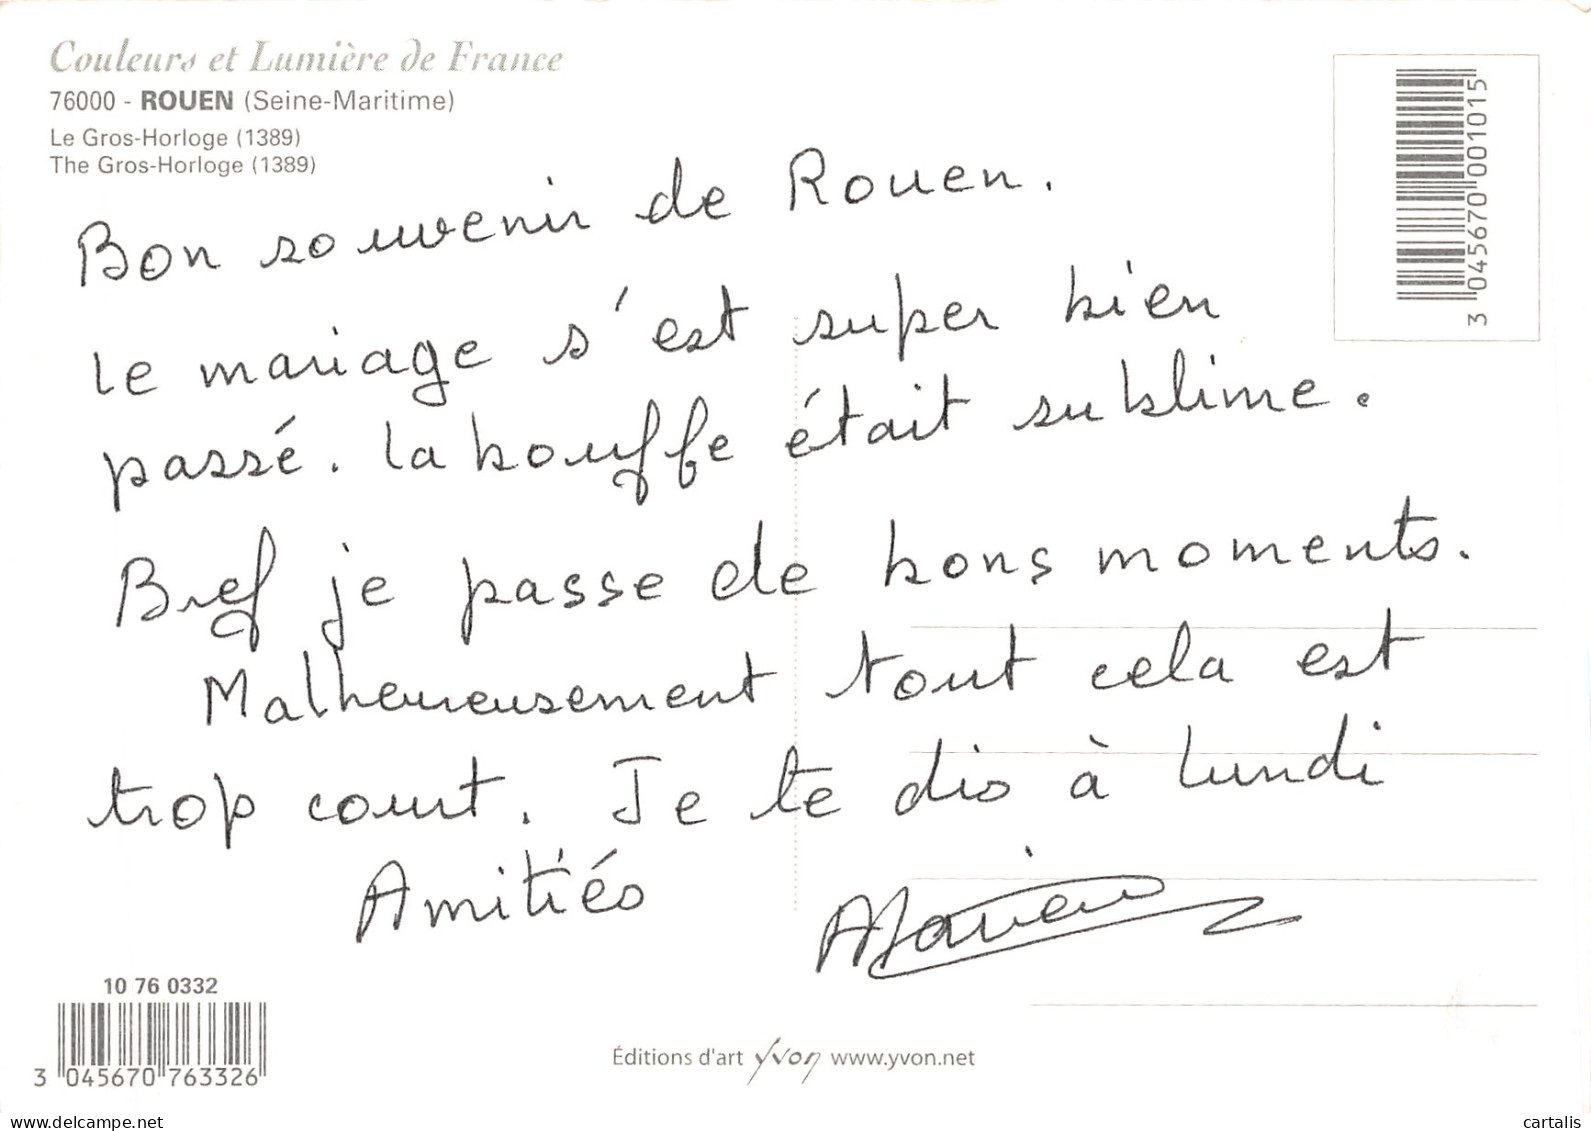 Couleurs et Lumière de France
76000 - ROUEN (Seine-Maritime)
Le Gros-Horloge (1389)
The Gros-Horloge (1389)
3 045670 001015
Bon souvenir de Rouen.
Le mariage s'est super bien
passé. La bouffe était sublime.
Bref je passe de bons moments.
Malheureusement tout cela est
trop court. Je te dis à lundi
Amitiés
10 76 0332
3 045670 763326
Éditions d'art yvon www.yvon.net
www.delcampe.net
cartalis